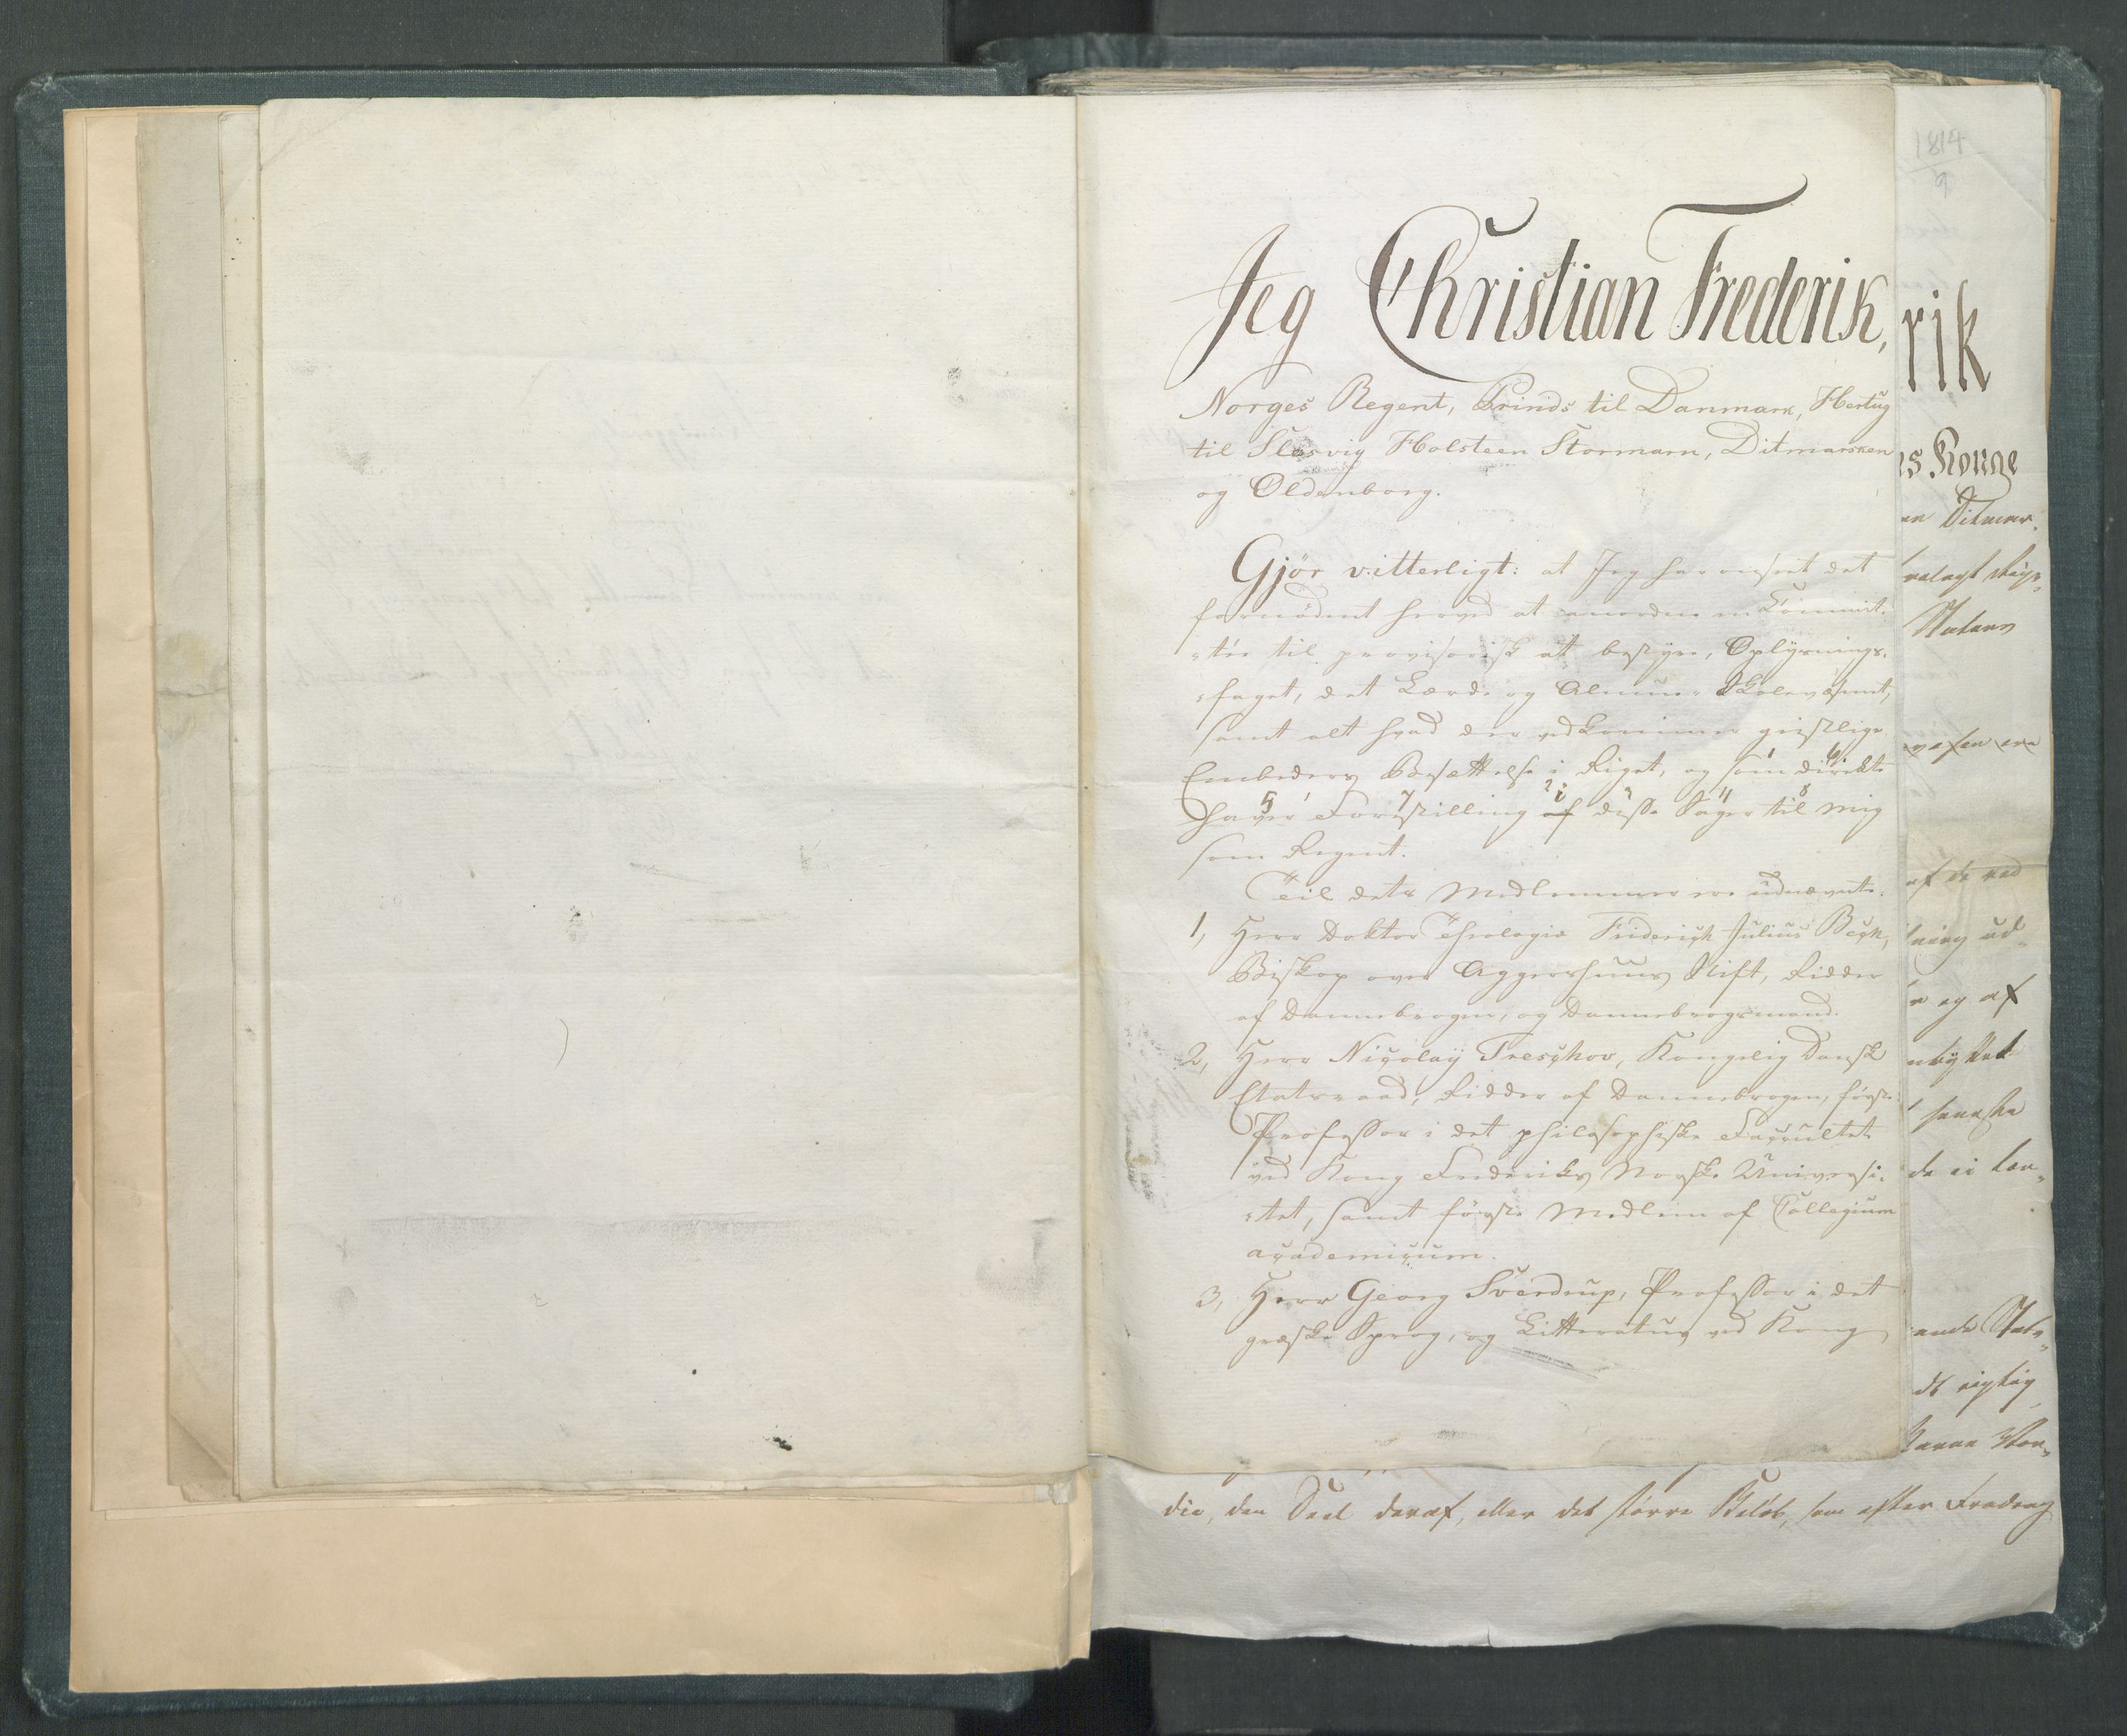 Jeg Christian Frederik,
Norges Regent, Prinds til Danmark, Hertug
til Slesvig Holsteen Stormarn, Ditmarsken
og Oldenborg.
Gjör vitterligt: at Jeg har anseet det
fornödent herved at anordne en Commit-
"tée til provisorisk at bestyre, Oplysnings-
"faget, det Lærde og Almue- Skolevæsenet,
samt alt hvad der vedkommer geistlige
Embeders Besættelse i Riget, og som direkte
haver Forestilling af i disse Sager til mig
som Regent.
Til dets Medlemmer ere udnævnte:
1, Herr Doktor Theologiæ Friderich Julius Bech,
Biskop over Aggershuus Stift, Ridder
af Dannebrogen, og Dannebrogsmand.
2, Herr Nicolay Treschov, Kongelig Dansk
Etatsraad, Ridder af Dannebrogen, förste
Professor i det philosophiske Facultet
ved Kong Frederiks Norske Universi-
"tet, samt förste Medlem af Collegium
academicum.
3, Herr Georg Sverdrup, Professor i det
græske Sprog, og Litteratur ved Kong
1814
9
rik
es Konge
en Ditmar-
Statens
af de ved
ning ud-
n og af
seneste
ende Stats
dt rigtig
die, den Deel deraf, eller det större Belöb, som efter Fradrag